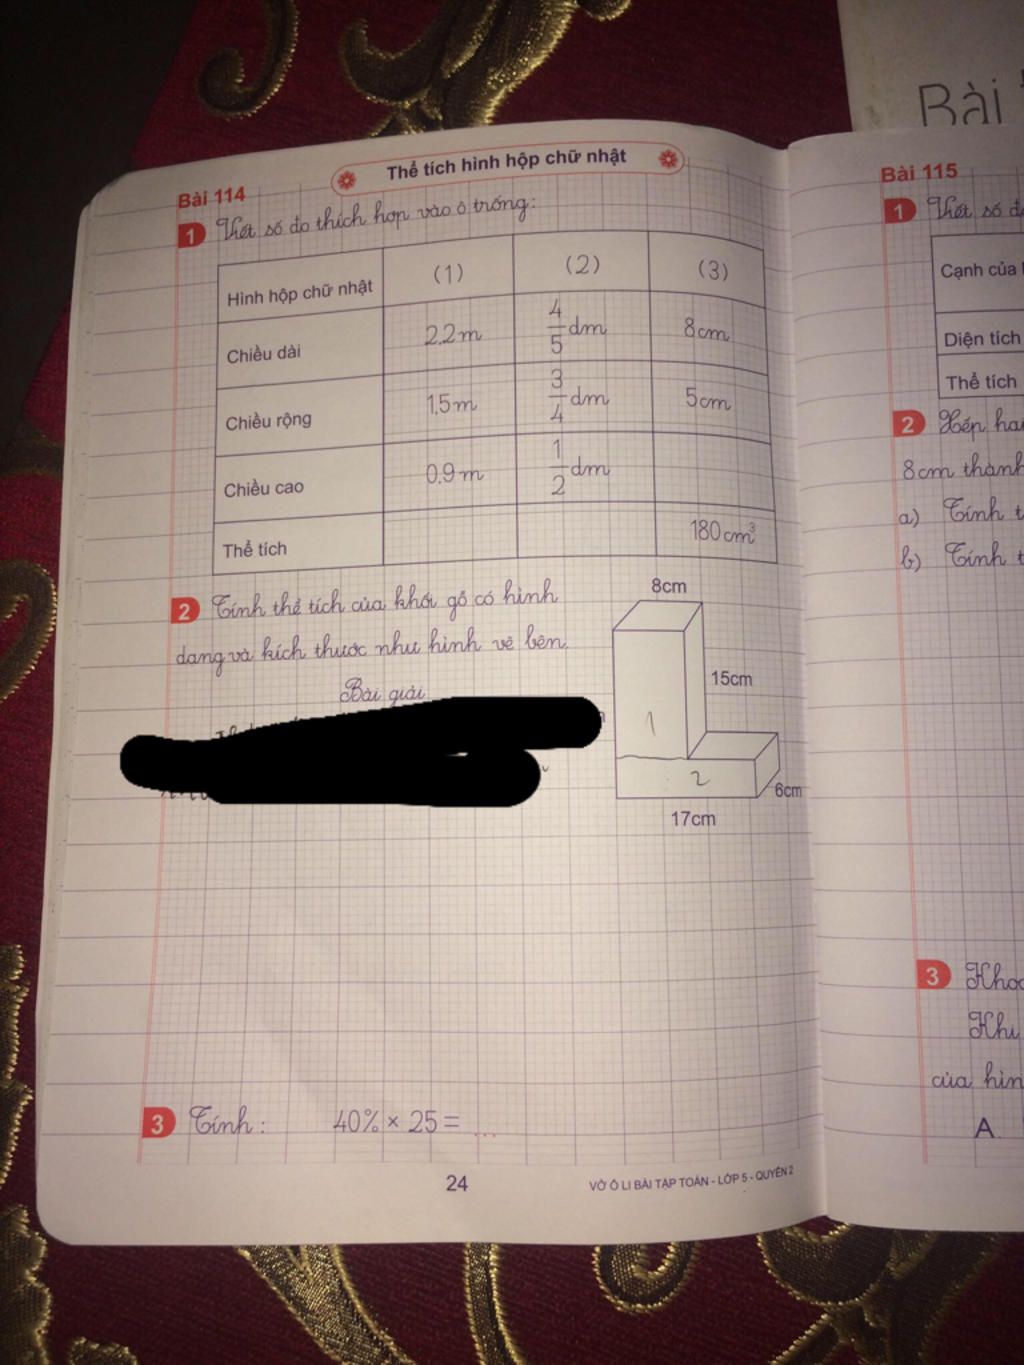 Bài
Thể tích hình hộp chữ nhật
Bài 114
1 Viết số đo thích hợp vào ô trống:
Hình hộp chữ nhật (1) (2) (3)
Chiều dài 2,2m 4/5 dm 8cm
Chiều rộng 1,5m 3/4 dm 5cm
Chiều cao 0,9m 1/2 dm
Thể tích 180cm³
2 Tính thể tích của khối gỗ có hình
dạng và kích thước như hình vẽ bên.
Bài giải
8cm
15cm
1
2
6cm
17cm
3 Tính: 40% × 25 = ...
24
VỞ Ô LI BÀI TẬP TOÁN - LỚP 5 - QUYỂN 2
Bài 115
1 Viết số đ
Cạnh của
Diện tích
Thể tích
2 Xếp ha
8cm thành
a) Tính t
b) Tính t
3 Kho
Khi
của hìn
A.